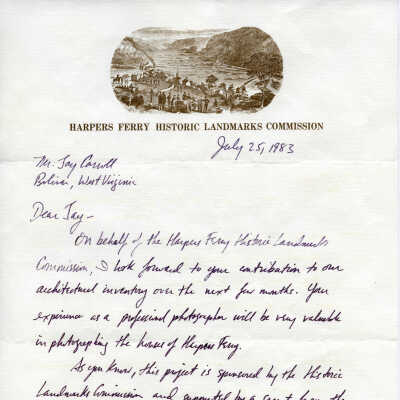 HARPERS FERRY HISTORIC LANDMARKS COMMISSION
July 25, 1983
Mr. Jay Carroll
Bolivar, West Virginia
Dear Jay -
On behalf of the Harpers Ferry Historic Landmarks
Commission, I look forward to your contribution to our
architectural inventory over the next few months. Your
experience as a professional photographer will be very valuable
in photographing the houses of Harpers Ferry.
As you know, this project is sponsored by the Historic
Landmarks Commission and supported by a grant from the